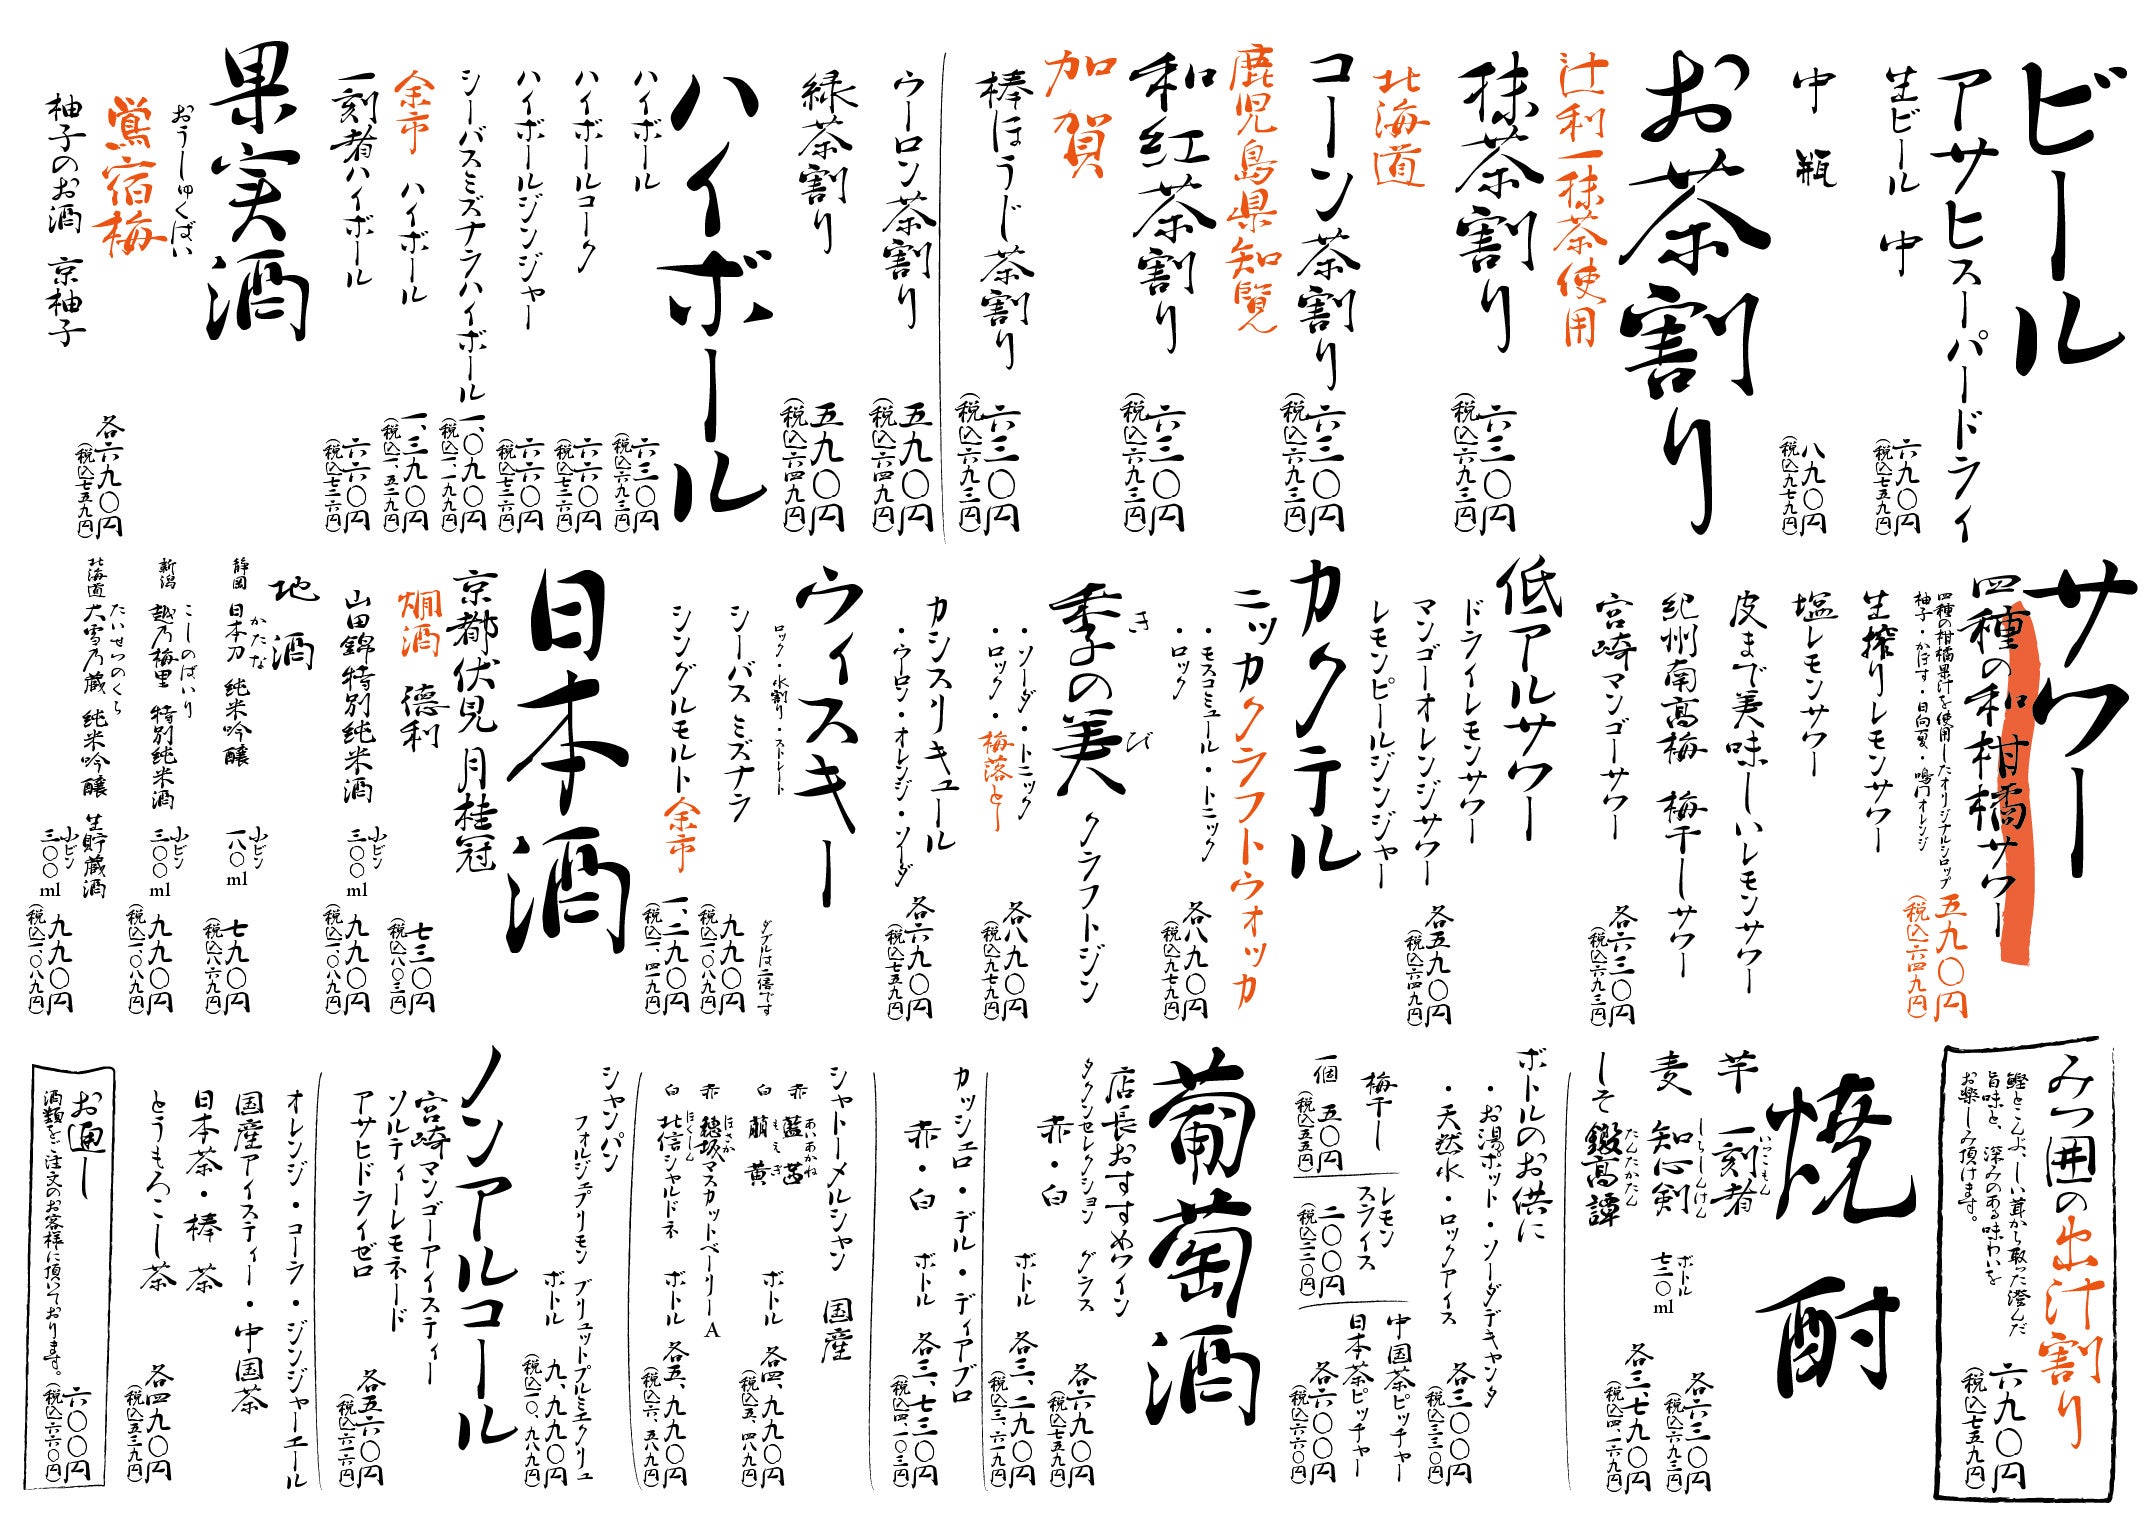 ビール
アサヒスーパードライ
生ビール 中
六九〇円
(税込七五九円)
中瓶
八九〇円
(税込九七九円)
お茶割り
辻利一抹茶使用
抹茶割り
六三〇円
(税込六九三円)
北海道
コーン茶割り
六三〇円
(税込六九三円)
鹿児島県知覧
和紅茶割り
六三〇円
(税込六九三円)
加賀
棒ほうじ茶割り
六三〇円
(税込六九三円)
ウーロン茶割り
五九〇円
(税込六四九円)
緑茶割り
五九〇円
(税込六四九円)
ハイボール
ハイボール
六三〇円
(税込六九三円)
ハイボールコーク
六六〇円
(税込七二六円)
ハイボールジンジャー
六六〇円
(税込七二六円)
シーバスミズナラハイボール
一、〇九〇円
(税込一、一九九円)
余市 ハイボール
一、三九〇円
(税込一、五二九円)
一刻者ハイボール
六六〇円
(税込七二六円)
果実酒
おうしゅくばい
鶯宿梅
柚子のお酒 京柚子
各六九〇円
(税込七五九円)
サワー
四種の和柑橘サワー
四種の柑橘果汁を使用したオリジナルシロップ
柚子・かぼす・日向夏・鳴門オレンジ
五九〇円
(税込六四九円)
生搾りレモンサワー
塩レモンサワー
皮まで美味しいレモンサワー
紀州南高梅 梅干しサワー
宮崎マンゴーサワー
各六三〇円
(税込六九三円)
低アルサワー
ドライレモンサワー
マンゴーオレンジサワー
レモンピールジンジャー
各五九〇円
(税込六四九円)
カクテル
ニッカクラフトウォッカ
・モスコミュール・トニック
・ロック
各八九〇円
(税込九七九円)
季の美 クラフトジン
きび
・ソーダ・トニック
・ロック・梅落とし
各八九〇円
(税込九七九円)
カシスリキュール
・ウーロン・オレンジ・ソーダ
各六九〇円
(税込七五九円)
ウィスキー
ロック・水割り・ストレート
ダブルは二倍です
シーバス ミズナラ
九九〇円
(税込一、〇八九円)
シングルモルト余市
一、二九〇円
(税込一、四一九円)
日本酒
京都伏見 月桂冠
燗酒 德利
七三〇円
(税込八〇三円)
山田錦特別純米酒
小ビン
三〇〇ml
九九〇円
(税込一、〇八九円)
地酒
静岡 日本刀 純米吟醸
かたな
小ビン
一八〇ml
七九〇円
(税込八六九円)
新潟 越乃梅里 特別純米酒
こしのばいり
小ビン
三〇〇ml
九九〇円
(税込一、〇八九円)
北海道 大雪乃蔵 純米吟醸 生貯蔵酒
たいせつのくら
小ビン
三〇〇ml
九九〇円
(税込一、〇八九円)
みつ囲の出汁割り
鰹とこんぶ、しい茸から取った澄んだ
旨味と、深みのある味わいを
お楽しみ頂けます。
六九〇円
(税込七五九円)
焼酎
芋 一刻者
いっこもん
麦 知心剣
しらしんけん
しそ 鍛高譚
たんたかたん
各六三〇円
(税込六九三円)
ボトル
七二〇ml
各三、七九〇円
(税込四、一六九円)
ボトルのお供に
・お湯ポット・ソーダデキャンタ
・天然水・ロックアイス
各三〇〇円
(税込三三〇円)
梅干し
一個 五〇円
(税込五五円)
レモン
スライス
二〇〇円
(税込二二〇円)
中国茶ピッチャー
日本茶ピッチャー
各六〇〇円
(税込六六〇円)
葡萄酒
店長おすすめワイン
タクンセレクション グラス
赤・白
各六九〇円
(税込七五九円)
ボトル
各三、二九〇円
(税込三、六一九円)
カッシェロ・デル・ディアブロ
赤・白 ボトル
各三、七三〇円
(税込四、一〇三円)
シャトーメルシャン 国産
赤 藍茜
あいあかね
白 萌黄
もえぎ
ボトル
各四、九九〇円
(税込五、四八九円)
赤 穂坂マスカットベーリーA
ほさか
白 北信シャルドネ
ほくしん
ボトル
各五、九九〇円
(税込六、五八九円)
シャンパン
フォルジュプリモン ブリュットプルミエクリュ
ボトル
九、九九〇円
(税込一〇、九八九円)
ノンアルコール
宮崎マンゴーアイスティー
ソルティーレモネード
アサヒドライゼロ
各五六〇円
(税込六一六円)
オレンジ・コーラ・ジンジャーエール
国産アイスティー・中国茶
日本茶・棒茶
とうもろこし茶
各四九〇円
(税込五三九円)
お通し
酒類をご注文のお客様に頂いております。
六〇〇円
(税込六六〇円)